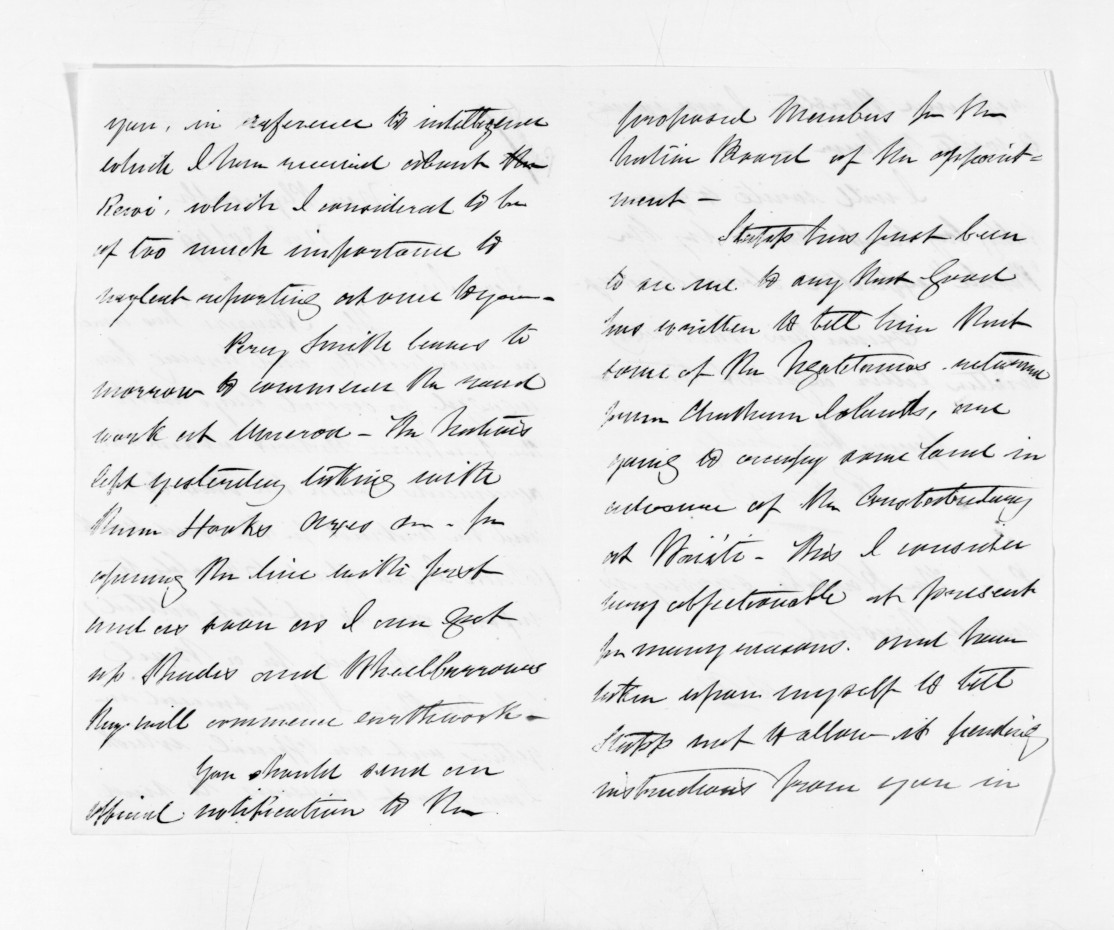 you, in reference to intelligence
which I have received about the
Rewi, which I considered to be
of too much importance to
neglect reporting at once to you —
Percy Smith leaves to
morrow to commence the road
work at — The Natives
left yesterday taking with
them Hooks Axes &c. for
opening the line with first
and as soon as I can get
up Spades and Wheelbarrows
they will commence earthwork —
You should send an
official notification to the
proposed Members for the
Native Board of the appoint=
ment —
Stapp has just been
to see me to say that Good
has written to tell him that
some of the Ngatitamas returned
from Chatham Islands, are
going to occupy some land in
advance of the Constabulary
at Waiiti — This I consider
very objectionable at present
for many reasons. and have
taken upon myself to tell
Stapp not to allow it pending
instructions from you in